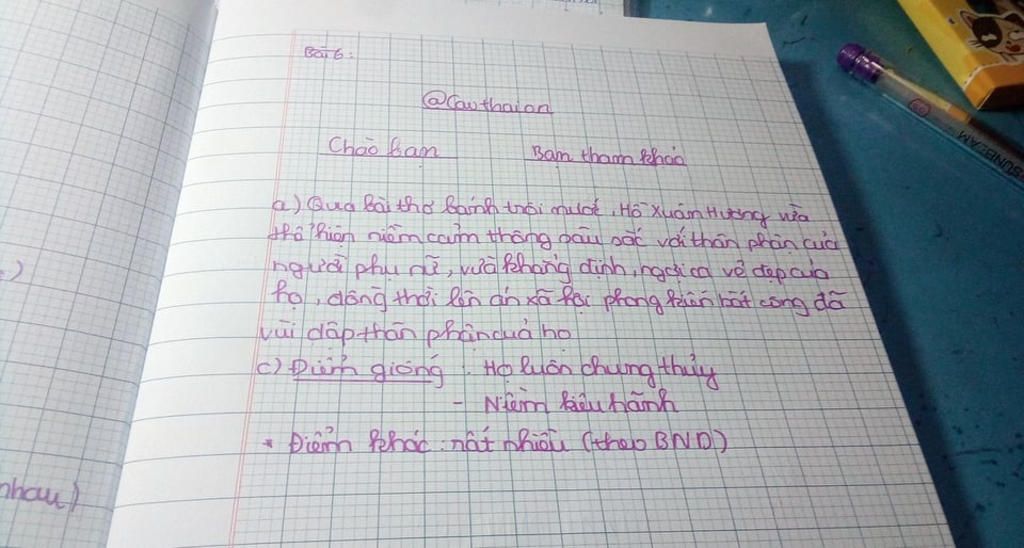 Bài 6:
@Cauthaian
Chào bạn
Bạn tham khảo
a) Qua bài thơ bánh trôi nước, Hồ Xuân Hương vừa
thể hiện niềm cảm thông sâu sắc với thân phận của
người phụ nữ, vừa khẳng định, ngợi ca vẻ đẹp của
họ, đồng thời lên án xã hội phong kiến bất công đã
vùi dập thân phận của họ
c) Điểm giống: Họ luôn chung thủy
- Niềm kiêu hãnh
* Điểm khác: rất nhiều (theo BND)
)
nhau)
SUNBEAM